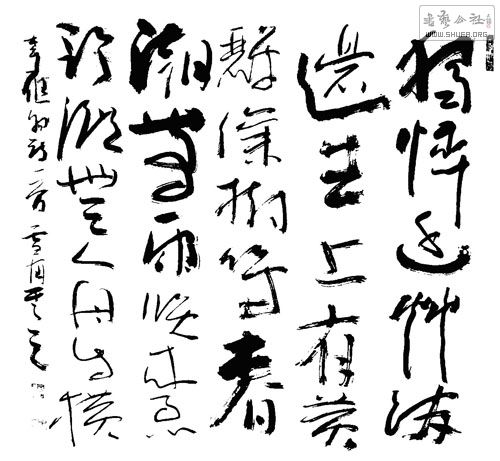 獨憐幽草澗
邊生上有黃
鸝深樹鳴春
潮帶雨晚來急
野渡無人舟自橫
韋應物詩一首
書藝公社
WWW.SHUFA.ORG